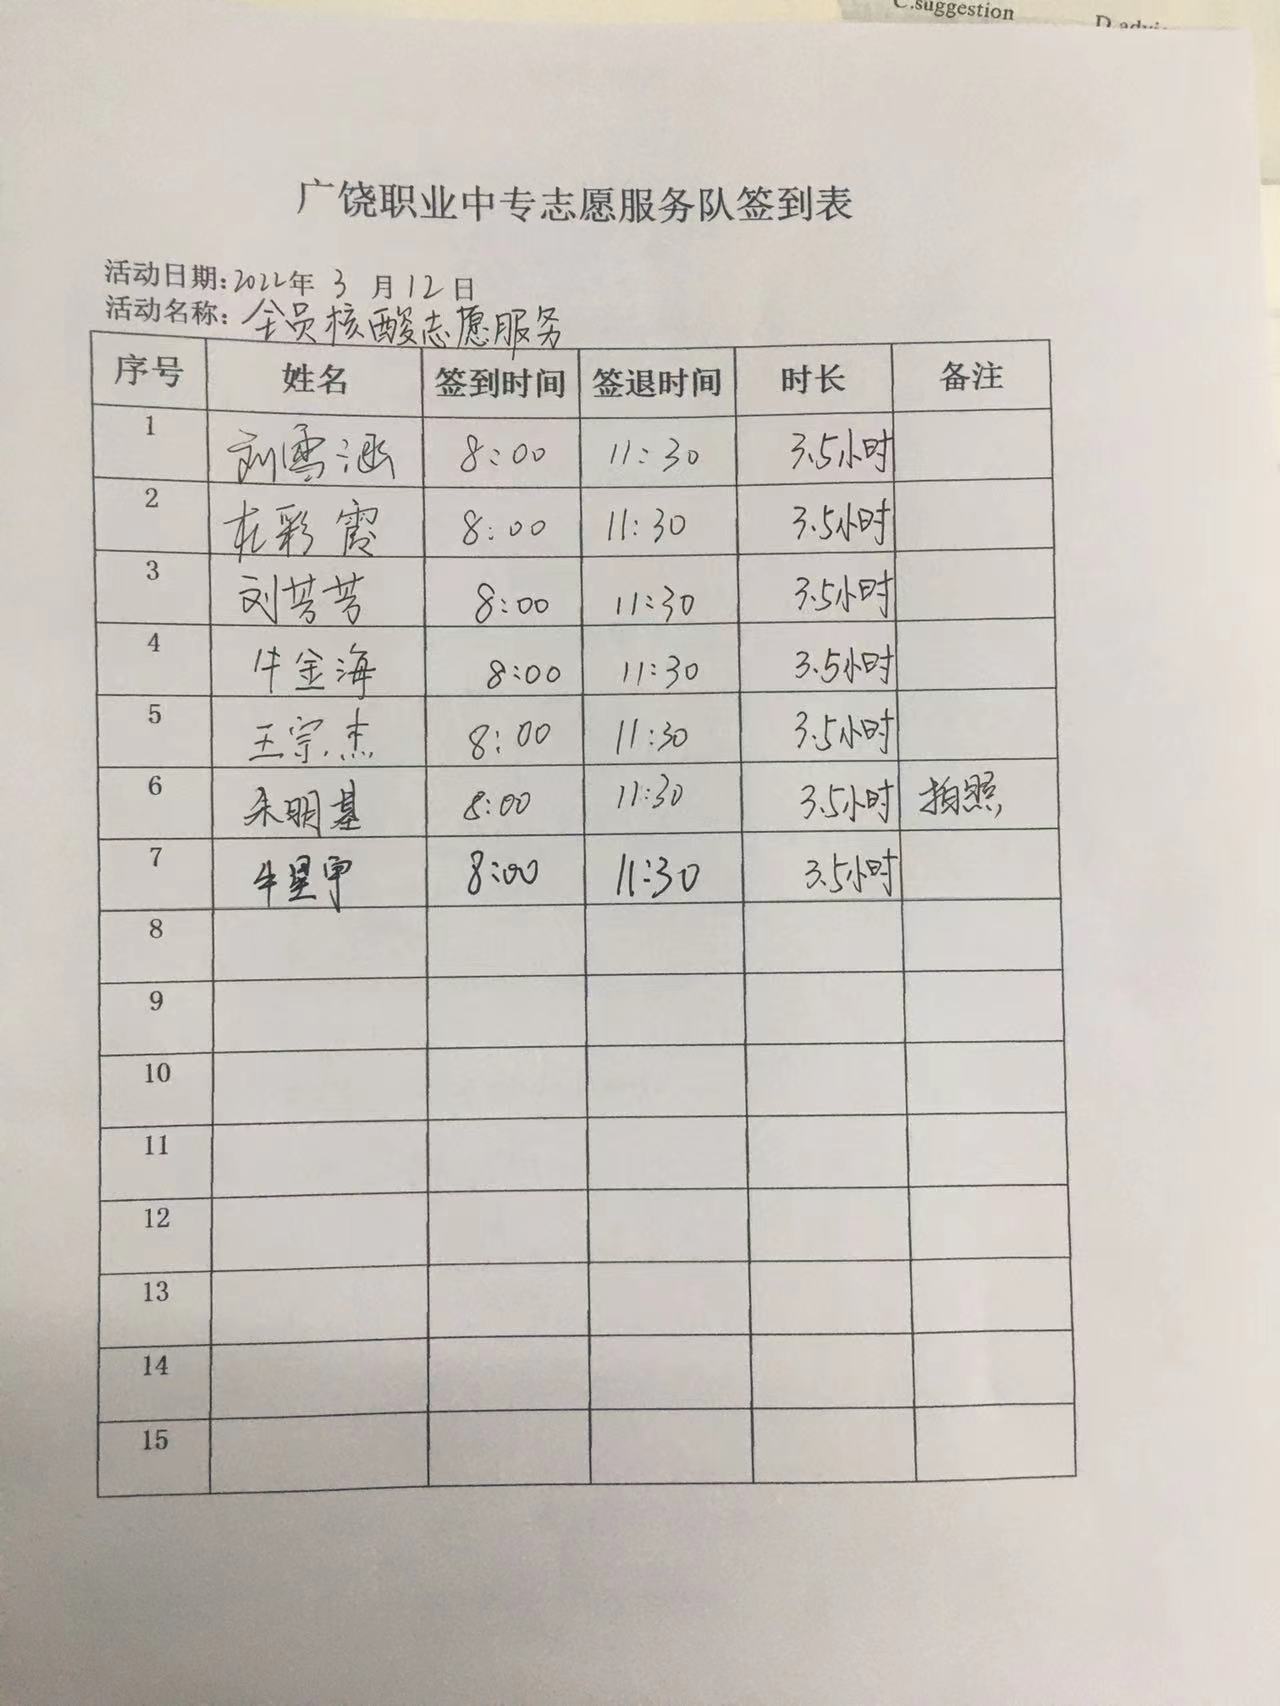 C.suggestion
广饶职业中专志愿服务队签到表
活动日期:2022年 3 月 12 日
活动名称:全员核酸志愿服务
序号 姓名 签到时间 签退时间 时长 备注
1 刘雪涵 8:00 11:30 3.5小时
2 杜彩霞 8:00 11:30 3.5小时
3 刘芳芳 8:00 11:30 3.5小时
4 牛金海 8:00 11:30 3.5小时
5 王宗杰 8:00 11:30 3.5小时
6 朱明基 8:00 11:30 3.5小时 拍照
7 牛星甲 8:00 11:30 3.5小时
8
9
10
11
12
13
14
15